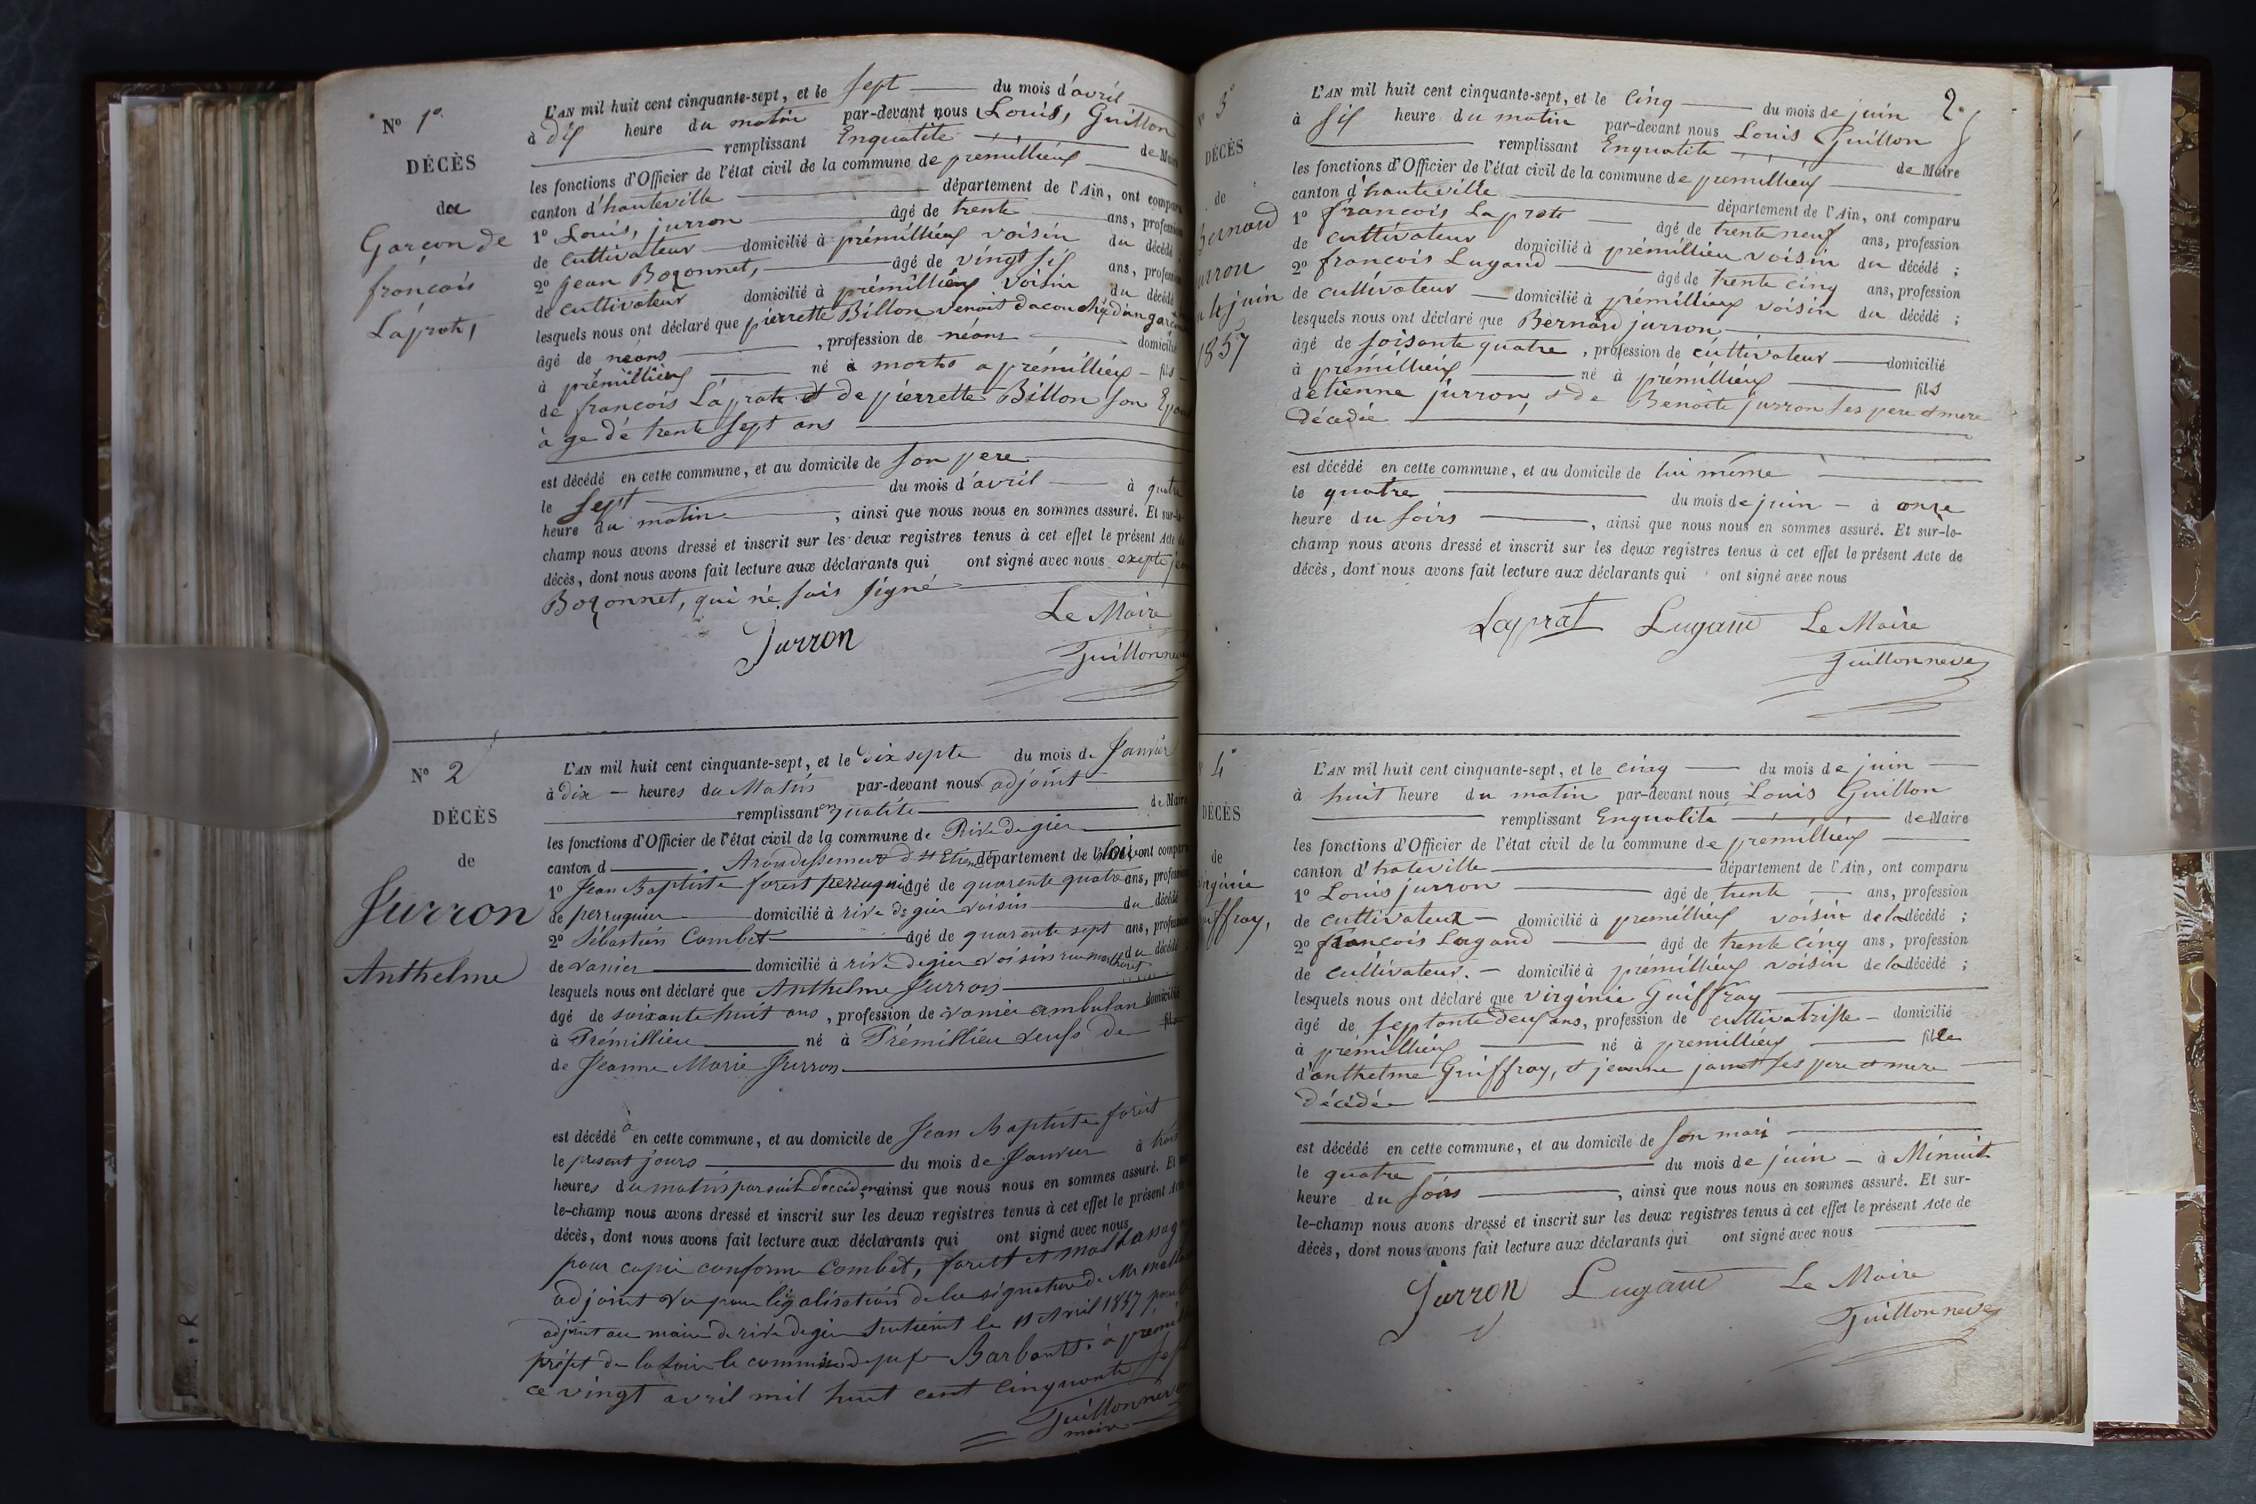 Nº 1º
DÉCÈS
du
Garçon de
françois
Láprat,
L'AN mil huit cent cinquante-sept, et le sept du mois d'avril
à dix heure du matin par-devant nous Louis, Guillon
remplissant Enqualité de Maire
les fonctions d'Officier de l'état civil de la commune de prémillieux
canton d'hauteville département de l'Ain, ont comparu
1º Louis, jurron âgé de trente ans, profession
de cultivateur domicilié à prémillieux voisin du décédé
2º jean Bozonnet, âgé de vingt six ans, profession
de cultivateur domicilié à prémillieux voisin du décédé
lesquels nous ont déclaré que pierrette Billon venoit dacouchée d'un garçon
âgé de néans, profession de néans domicilié
à prémillieux né à morts a prémillieux fils
de françois Láprat et de pierrette Billon son Epouse
àge dé trente sept ans
est décédé en cette commune, et au domicile de son pere
le sept du mois d'avril à quatre
heure du matin, ainsi que nous nous en sommes assuré. Et sur-le-
champ nous avons dressé et inscrit sur les deux registres tenus à cet effet le présent Acte de
décès, dont nous avons fait lecture aux déclarants qui ont signé avec nous exepté jean
Bozonnet, qui né sais signé
Le Maire
Jurron Guillonneve
Nº 2
DÉCÈS
de
Jurron
Anthelme
L'AN mil huit cent cinquante-sept, et le dix septe du mois de Janvier
à dix heures du Matin par-devant nous adjoint
remplissant en qualité de Maire
les fonctions d'Officier de l'état civil de la commune de Rive de gier
canton d Arondissement d St Etienne département de la Loire ont comparu
1º Jean Baptiste forest perruquier âgé de quarente quatre ans, profession
de perruquier domicilié à rive de gier voisin du décédé
2º Sébastien Combet âgé de quarente sept ans, profession
de vanier domicilié à rive de gier voisin du décédé
lesquels nous ont déclaré que Anthelme Jurron
âgé de soixante huit ans, profession de vanier ambulan domicilié
à Prémillieu né à Prémillieu veufs de fils
de Jeanne Marie Jurron
est décédé à en cette commune, et au domicile de Jean Baptiste forest
le present jours du mois de Janvier à trois
heures du matin ainsi que nous nous en sommes assuré. Et sur-
le-champ nous avons dressé et inscrit sur les deux registres tenus à cet effet le présent Acte de
décès, dont nous avons fait lecture aux déclarants qui ont signé avec nous
pour copie conforme Combet, forest et
adjoint vu pour légalisation de la signature de Mr
adjoint au maire de rive de gier le 11 Avril 1857 pour le
préfet de la Loire le à prémillieux
ce vingt avril mil huit cent cinquante sept
Guillonneve
maire
2e
3º
DÉCÈS
de
Bernard
jurron
le 4 juin
1857
L'AN mil huit cent cinquante-sept, et le cinq du mois de juin
à six heure du matin par-devant nous Louis Guillon
remplissant Enqualité de Maire
les fonctions d'Officier de l'état civil de la commune de premillieux
canton d'hauteville département de l'Ain, ont comparu
1º françois Laprat âgé de trente neuf ans, profession
de cultivateur domicilié à prémillieu voisin du décédé ;
2º françois Lugand âgé de trente cinq ans, profession
de cultivateur domicilié à prémillieux voisin du décédé ;
lesquels nous ont déclaré que Bernard jurron
âgé de soisante quatre, profession de cultivateur domicilié
à prémillieux né à prémillieux fils
detienne jurron, et de Benoite jurron ses pere et mere
Décédée
est décédé en cette commune, et au domicile de lui même
le quatre du mois de juin à onze
heure du soirs, ainsi que nous nous en sommes assuré. Et sur-le-
champ nous avons dressé et inscrit sur les deux registres tenus à cet effet le présent Acte de
décès, dont nous avons fait lecture aux déclarants qui ont signé avec nous
Laprat Lugand Le Maire
Guillonneve
4º
DÉCÈS
de
virginie
Guiffray,
L'AN mil huit cent cinquante-sept, et le cinq du mois de juin
à huit heure du matin par-devant nous Louis Guillon
remplissant Enqualité de Maire
les fonctions d'Officier de l'état civil de la commune de prémillieux
canton d'hateville département de l'Ain, ont comparu
1º Louis jurron âgé de trente ans, profession
de cultivateur domicilié à premillieux voisin de la décédé ;
2º françois Lugand âgé de trente cinq ans, profession
de cultivateur. domicilié à prémillieux voisin de la décédé ;
lesquels nous ont déclaré que virginie Guiffray
âgé de septante deux ans, profession de cultivatrisse domicilié
à prémillieux né à premillieux fille
d'anthelme Guiffray, et jeanne janet ses pere et mere
décédée
est décédé en cette commune, et au domicile de son mari
le quatre du mois de juin à Minuit
heure du soirs, ainsi que nous nous en sommes assuré. Et sur-
le-champ nous avons dressé et inscrit sur les deux registres tenus à cet effet le présent Acte de
décès, dont nous avons fait lecture aux déclarants qui ont signé avec nous
Jurron Lugand Le Maire
Guillonneve